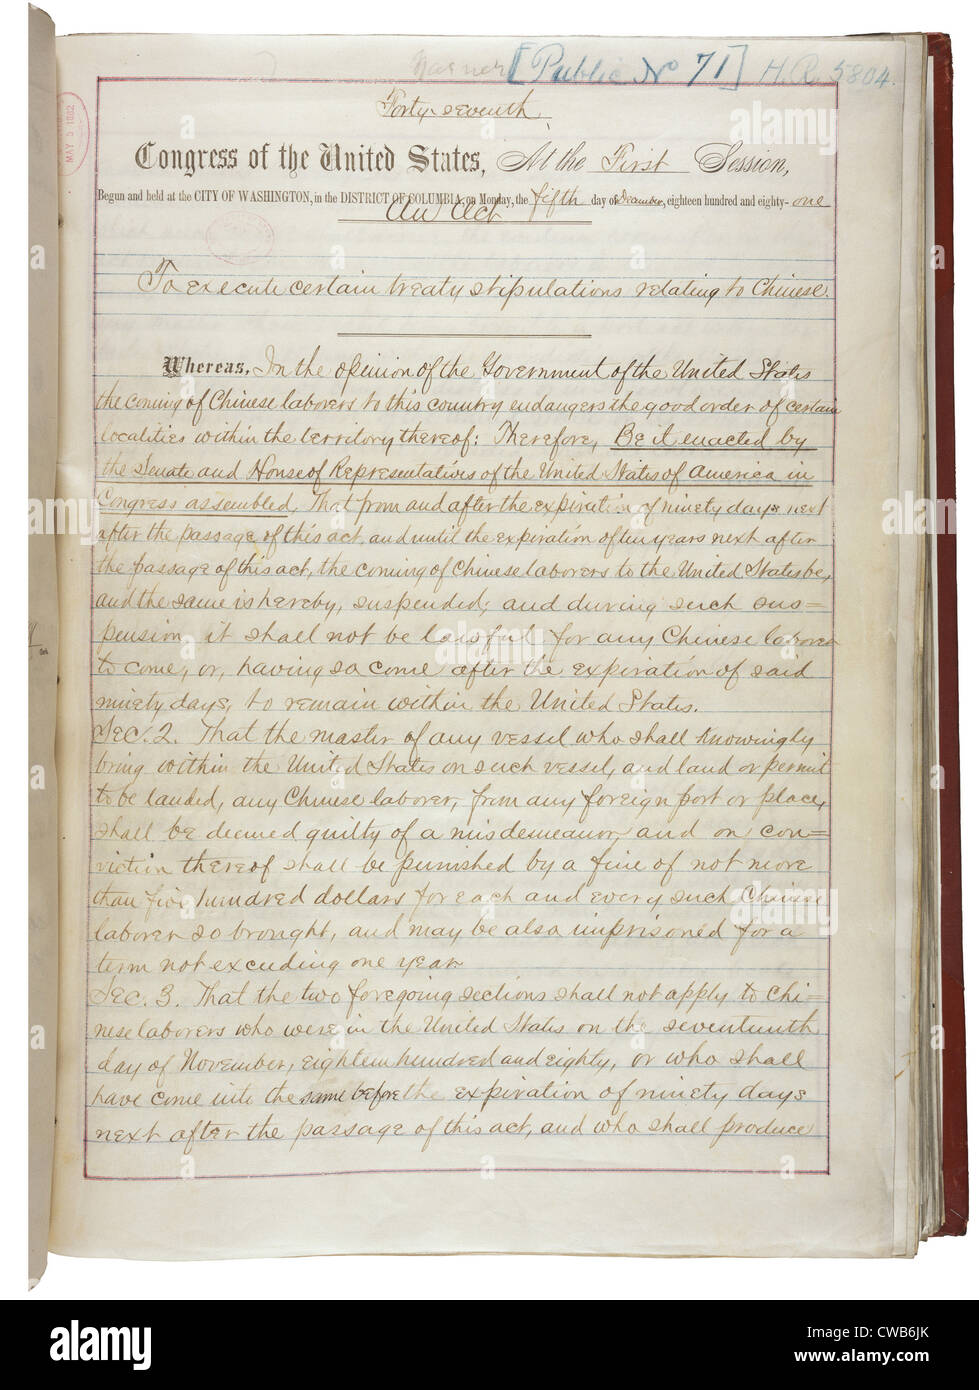 [Public No 71] H.R. 5804.
Forty-seventh
Congress of the United States, At the First Session,
Begun and held at the CITY OF WASHINGTON, in the DISTRICT OF COLUMBIA, on Monday, the fifth day of December, eighteen hundred and eighty-one
MAY 5 1882
An Act
To execute certain treaty stipulations relating to Chinese.
Whereas, In the opinion of the Government of the United States
the coming of Chinese laborers to this country endangers the good order of certain
localities within the territory thereof: Therefore, Be it enacted by
the Senate and House of Representatives of the United States of America in
Congress assembled, That from and after the expiration of ninety days next
after the passage of this act, and until the expiration of ten years next after
the passage of this act, the coming of Chinese laborers to the United States be,
and the same is hereby, suspended; and during such sus=
pension it shall not be lawful for any Chinese laborer
to come, or, having so come after the expiration of said
ninety days, to remain within the United States.
Sec. 2. That the master of any vessel who shall knowingly
bring within the United States on such vessel, and land or permit
to be landed, any Chinese laborer, from any foreign port or place,
shall be deemed guilty of a misdemeanor, and on con=
viction thereof shall be punished by a fine of not more
than five hundred dollars for each and every such Chinese
laborer so brought, and may be also imprisoned for a
term not exceeding one year.
Sec. 3. That the two foregoing sections shall not apply to Chi=
nese laborers who were in the United States on the seventeenth
day of November, eighteen hundred and eighty, or who shall
have come into the same before the expiration of ninety days
next after the passage of this act, and who shall produce
alamy
Image ID: CWB6JK
www.alamy.com